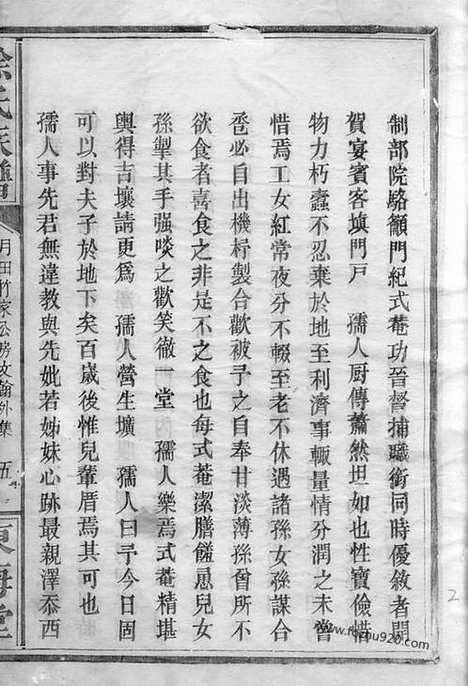 制部院駱籲門紀式菴功晉督捕職銜同時優敘者開
賀宴賓客塡門戶　孺人厨傳蕭然坦如也性寶儉惜
物力朽蠹不忍棄於地至利濟事輒量情分潤之未嘗
惜焉工女紅常夜分不輟至老不休遇諸孫女孫謀合
卺必自出機杼製合歡被予之自奉甘淡薄孫曾所不
欲食者喜食之非是不之食也每式菴潔膳饈恖兒女
孫掣其手强啖之歡笑徹一堂　孺人樂焉式菴精堪
輿得吉壤請更爲　孺人營生壙　孺人曰予今日固
可以對夫子於地下矣百歲後惟兒輩厝焉其可也
孺人事先君無違教與先妣若姊妹心跡最親澤忝西
徐氏族譜
月田竹家公房文翰外集　五
東海堂